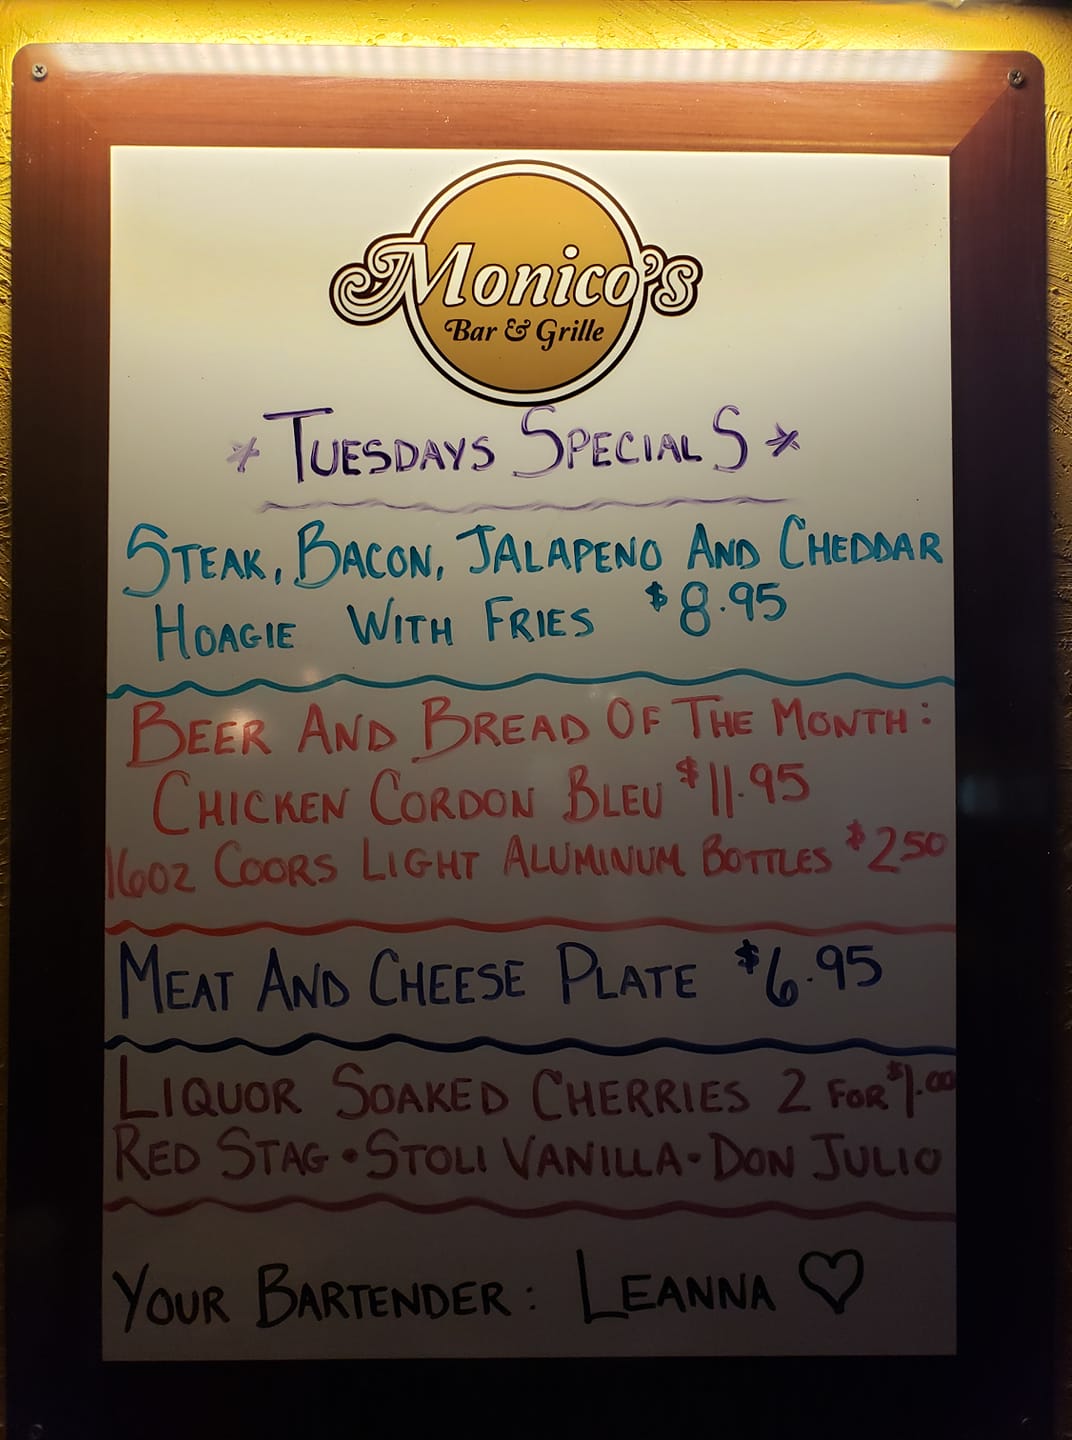 Monico's
Bar & Grille
* TUESDAYS SPECIALS *
STEAK, BACON, JALAPENO AND CHEDDAR
HOAGIE WITH FRIES $8.95
BEER AND BREAD OF THE MONTH:
CHICKEN CORDON BLEU $11.95
16OZ COORS LIGHT ALUMINUM BOTTLES $2.50
MEAT AND CHEESE PLATE $6.95
LIQUOR SOAKED CHERRIES 2 FOR $1.00
RED STAG • STOLI VANILLA • DON JULIO
YOUR BARTENDER: LEANNA ♡